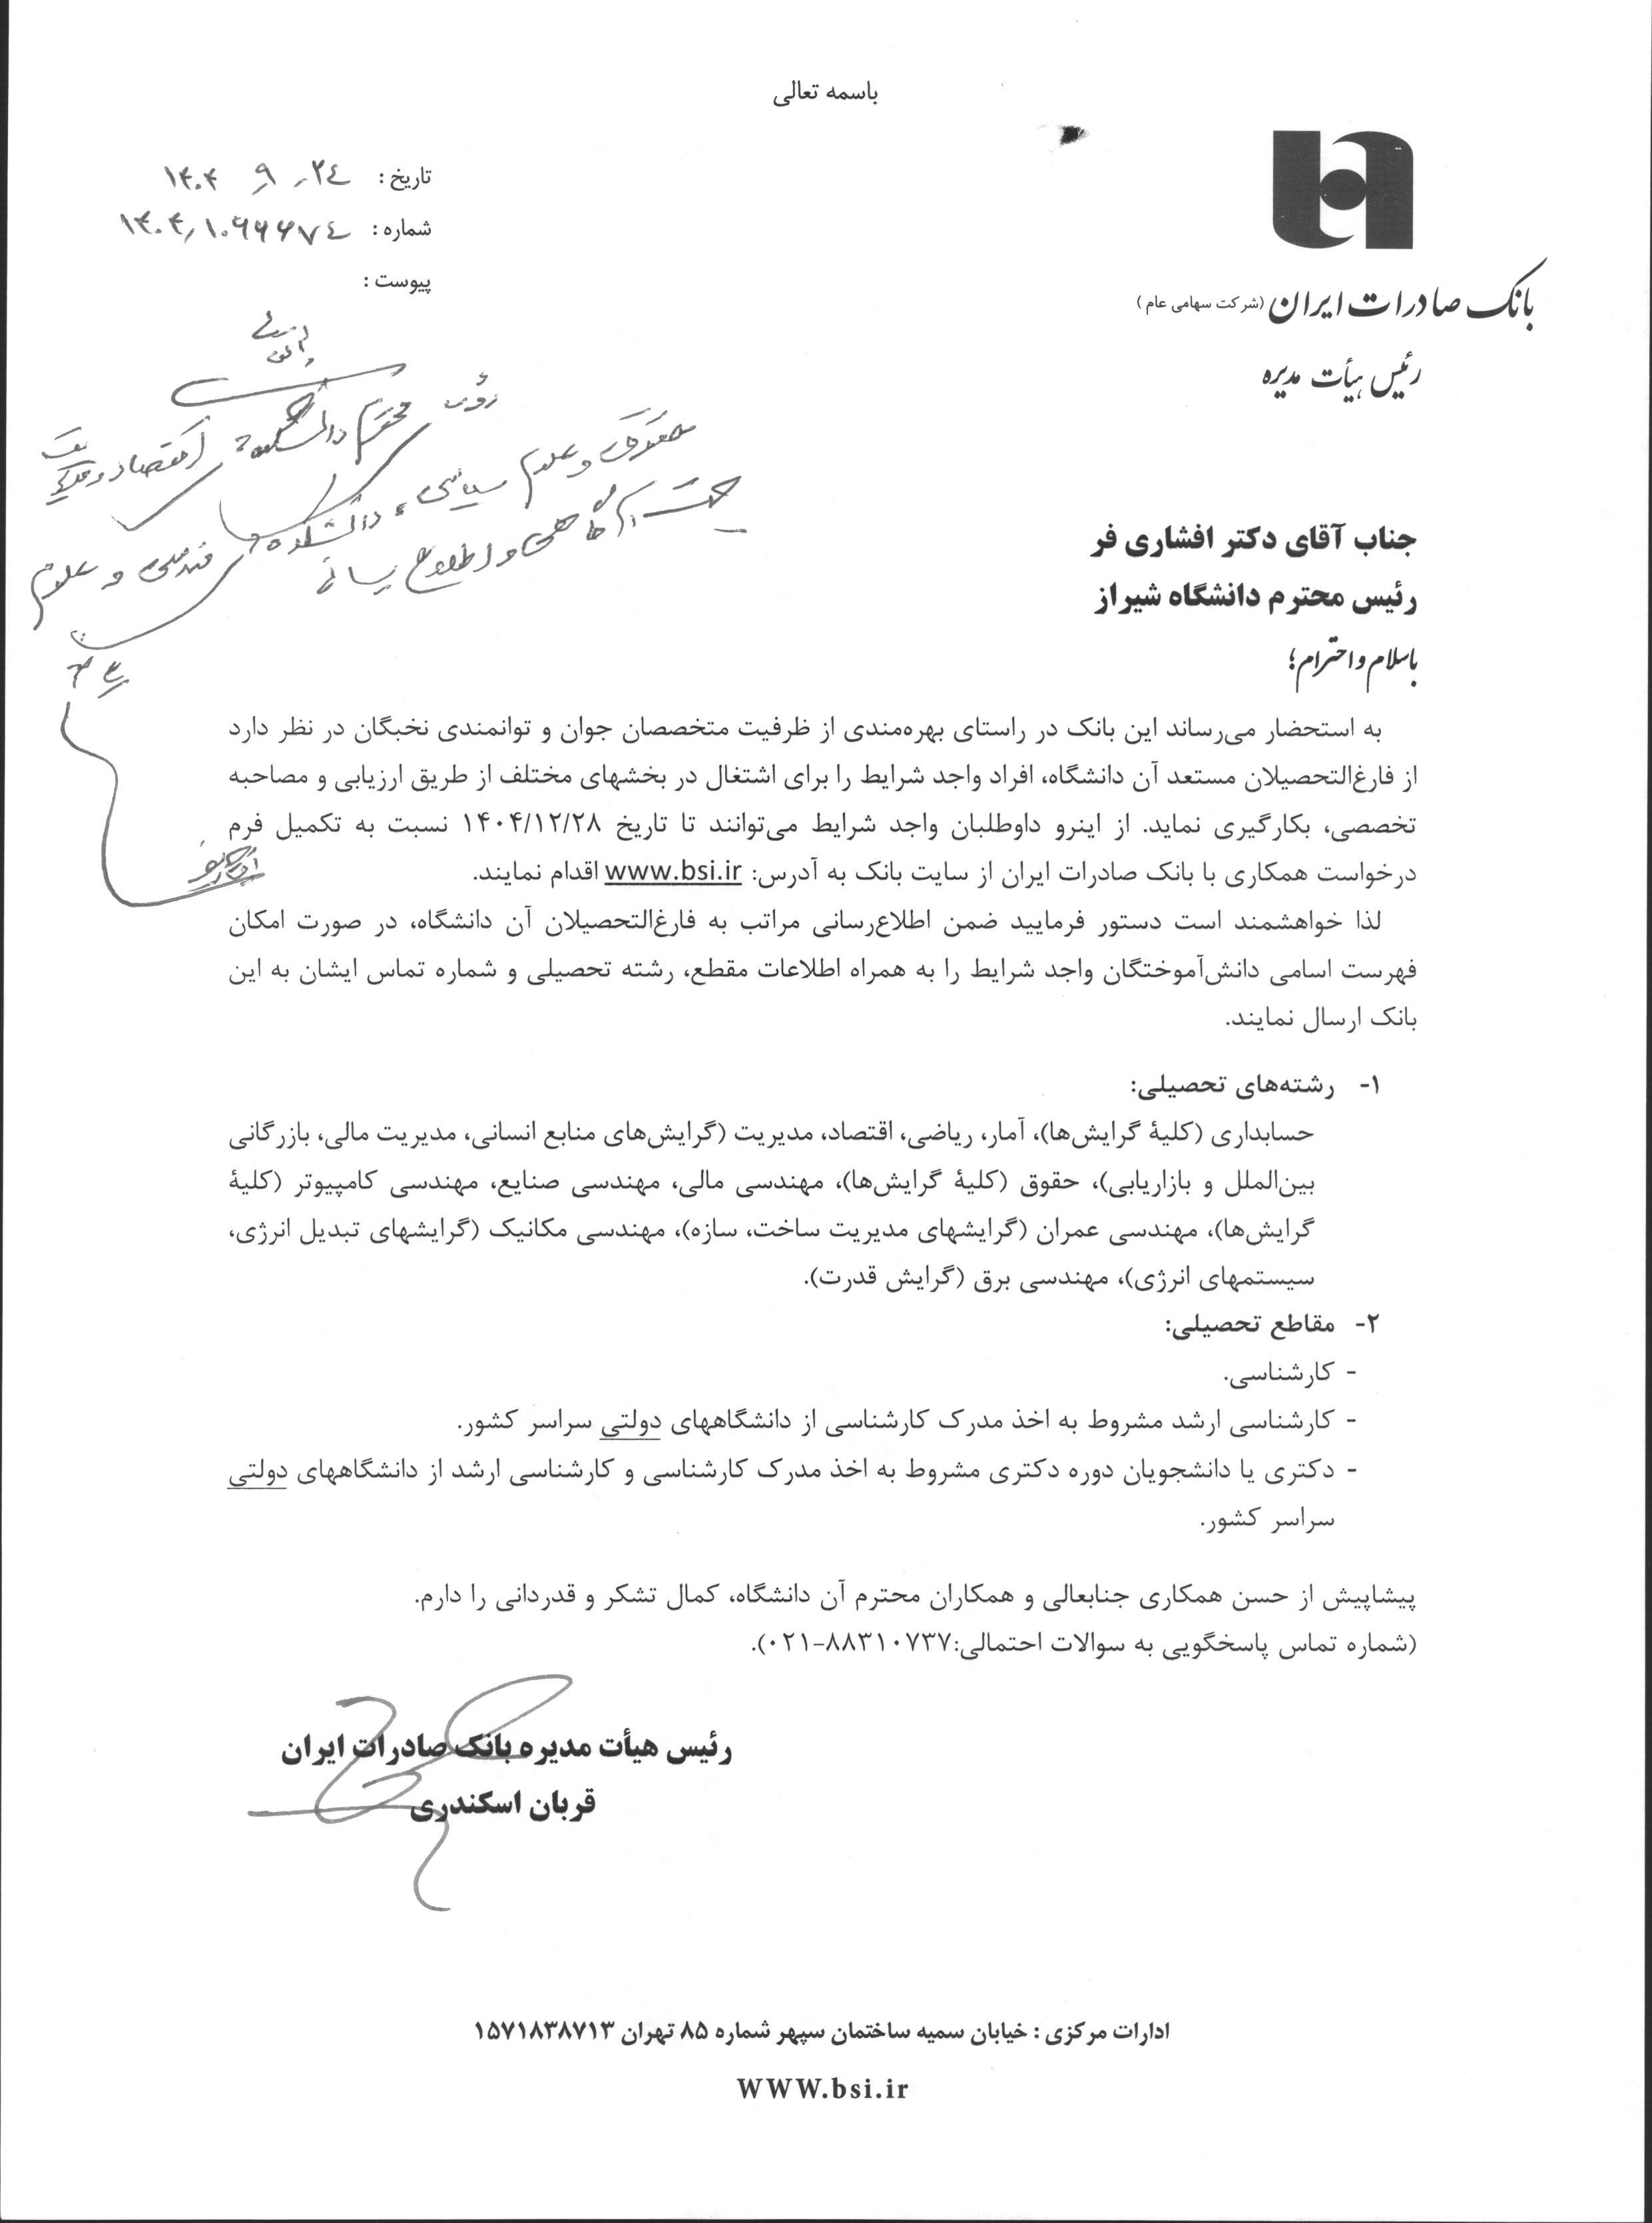 باسمه تعالی
تاریخ: ۱۴۰۴ ۹ ۲۴
شماره: ۱۴۰۴/۱۰۶۶۶۷۴
پیوست:
بانک صادرات ایران (شرکت سهامی عام)
رئیس هیأت مدیره
محترم دانشکده اقتصاد و مدیریت
حقوق و علوم سیاسی، دانشکده مهندسی و علوم
جهت آگاهی و اطلاع رسانی
جناب آقای دکتر افشاری فر
رئیس محترم دانشگاه شیراز
باسلام و احترام؛
به استحضار می‌رساند این بانک در راستای بهره‌مندی از ظرفیت متخصصان جوان و توانمندی نخبگان در نظر دارد
از فارغ‌التحصیلان مستعد آن دانشگاه، افراد واجد شرایط را برای اشتغال در بخشهای مختلف از طریق ارزیابی و مصاحبه
تخصصی، بکارگیری نماید. از اینرو داوطلبان واجد شرایط می‌توانند تا تاریخ ۱۴۰۴/۱۲/۲۸ نسبت به تکمیل فرم
درخواست همکاری با بانک صادرات ایران از سایت بانک به آدرس: www.bsi.ir اقدام نمایند.
لذا خواهشمند است دستور فرمایید ضمن اطلاع‌رسانی مراتب به فارغ‌التحصیلان آن دانشگاه، در صورت امکان
فهرست اسامی دانش‌آموختگان واجد شرایط را به همراه اطلاعات مقطع، رشته تحصیلی و شماره تماس ایشان به این
بانک ارسال نمایند.
۱- رشته‌های تحصیلی:
حسابداری (کلیۀ گرایش‌ها)، آمار، ریاضی، اقتصاد، مدیریت (گرایش‌های منابع انسانی، مدیریت مالی، بازرگانی
بین‌الملل و بازاریابی)، حقوق (کلیۀ گرایش‌ها)، مهندسی مالی، مهندسی صنایع، مهندسی کامپیوتر (کلیۀ
گرایش‌ها)، مهندسی عمران (گرایشهای مدیریت ساخت، سازه)، مهندسی مکانیک (گرایشهای تبدیل انرژی،
سیستمهای انرژی)، مهندسی برق (گرایش قدرت).
۲- مقاطع تحصیلی:
- کارشناسی.
- کارشناسی ارشد مشروط به اخذ مدرک کارشناسی از دانشگاههای دولتی سراسر کشور.
- دکتری یا دانشجویان دوره دکتری مشروط به اخذ مدرک کارشناسی و کارشناسی ارشد از دانشگاههای دولتی
سراسر کشور.
پیشاپیش از حسن همکاری جنابعالی و همکاران محترم آن دانشگاه، کمال تشکر و قدردانی را دارم.
(شماره تماس پاسخگویی به سوالات احتمالی:۸۸۳۱۰۷۳۷-۰۲۱).
رئیس هیأت مدیره بانک صادرات ایران
قربان اسکندری
ادارات مرکزی : خیابان سمیه ساختمان سپهر شماره ۸۵ تهران ۱۵۷۱۸۳۸۷۱۳
WWW.bsi.ir